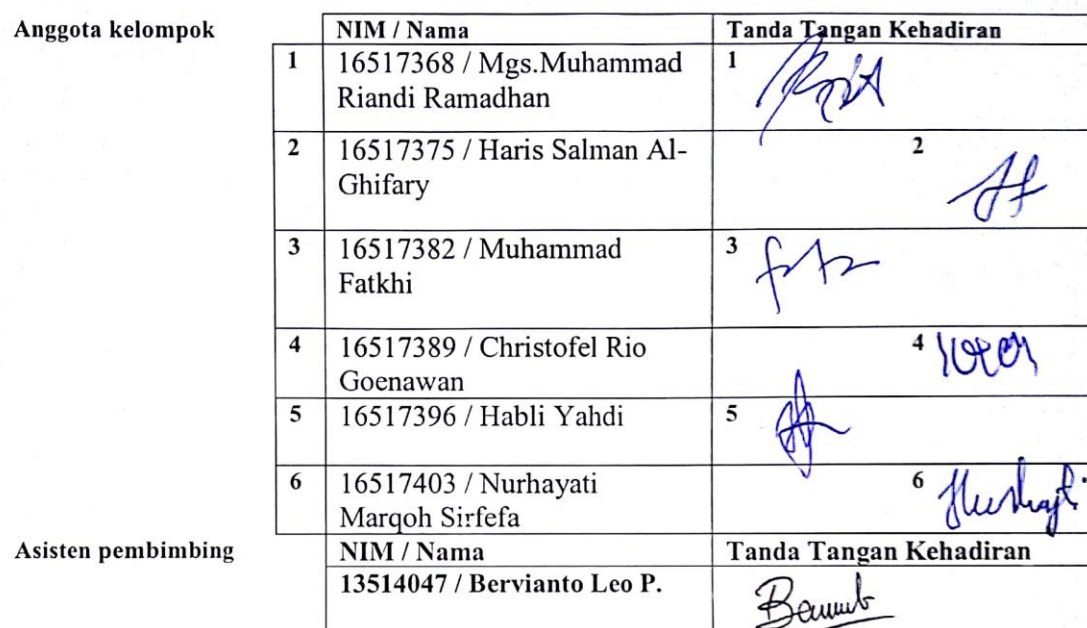 Anggota kelompok
NIM / Nama
Tanda Tangan Kehadiran
1
16517368 / Mgs.Muhammad
Riandi Ramadhan
1
2
16517375 / Haris Salman Al-
Ghifary
2
3
16517382 / Muhammad
Fatkhi
3
4
16517389 / Christofel Rio
Goenawan
4
5
16517396 / Habli Yahdi
5
6
16517403 / Nurhayati
Marqoh Sirfefa
6
Asisten pembimbing
NIM / Nama
Tanda Tangan Kehadiran
13514047 / Bervianto Leo P.